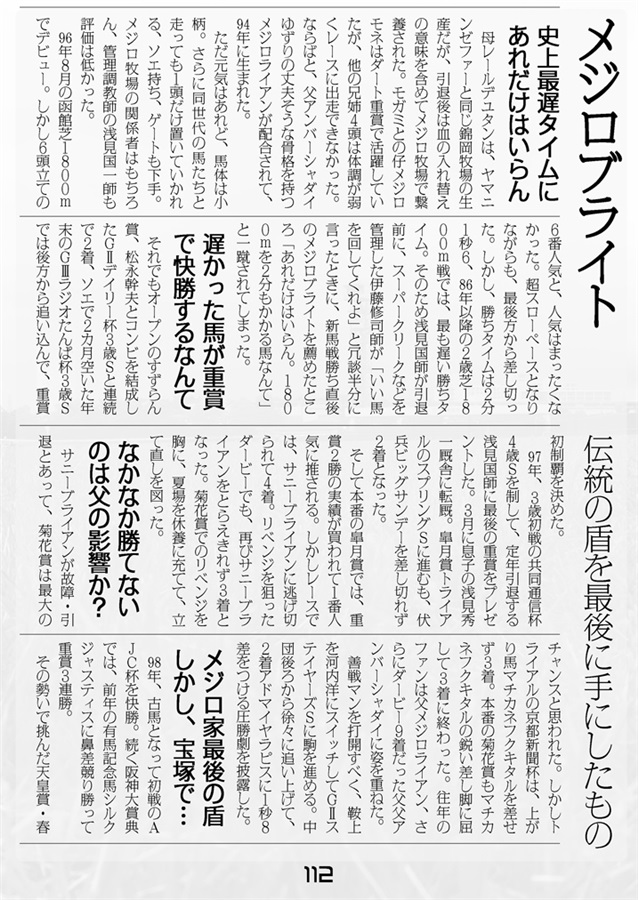 メジロブライト
伝統の盾を最後に手にしたもの
史上最遅タイムに
あれだけはいらん
母レールデュタンは、ヤマニ
ンゼファーと同じ錦岡牧場の生
産だが、引退後は血の入れ替え
の意味を含めてメジロ牧場で繋
養された。モガミとの仔メジロ
モネはダート重賞で活躍してい
たが、他の兄姉4頭は体調が弱
くレースに出走できなかった。
ならばと、父アンバーシャダイ
ゆずりの丈夫そうな骨格を持つ
メジロライアンが配合されて、
94年に生まれた。
ただ元気はあれど、馬体は小
柄。さらに同世代の馬たちと
走っても1頭だけ置いていかれ
る、ソエ持ち、ゲートも下手。
メジロ牧場の関係者はもちろ
ん、管理調教師の浅見国一師も
評価は低かった。
96年8月の函館芝1800m
でデビュー。しかし6頭立ての
6番人気と、人気はまったくな
かった。超スローペースとなり
ながらも、最後方から差し切っ
た。しかし、勝ちタイムは2分
1秒6、86年以降の2歳芝18
00m戦では、最も遅い勝ちタ
イム。そのため浅見国師が引退
前に、スーパークリークなどを
管理した伊藤修司師が「いい馬
を回してくれよ」と冗談半分に
言ったときに、新馬戦勝ち直後
のメジロブライトを薦めたとこ
ろ「あれだけはいらん。180
0mを2分もかかる馬なんて」
と一蹴されてしまった。
遅かった馬が重賞
で快勝するなんて
それでもオープンのすずらん
賞、松永幹夫とコンビを結成し
たGⅡデイリー杯3歳Sと連続
で2着、ソエで2カ月空いた年
末のGⅢラジオたんぱ杯3歳S
では後方から追い込んで、重賞
初制覇を決めた。
97年、3歳初戦の共同通信杯
4歳Sを制して、定年引退する
浅見国師に最後の重賞をプレゼ
ントした。3月に息子の浅見秀
一厩舎に転厩。皐月賞トライア
ルのスプリングSに進むも、伏
兵ビッグサンデーを差し切れず
2着となった。
そして本番の皐月賞では、重
賞2勝の実績が買われて1番人
気に推される。しかしレースで
は、サニーブライアンに逃げ切
られて4着。リベンジを狙った
ダービーでも、再びサニーブラ
イアンをとらえきれず3着と
なった。菊花賞でのリベンジを
胸に、夏場を休養に充てて、立
て直しを図った。
なかなか勝てない
のは父の影響か?
サニーブライアンが故障・引
退とあって、菊花賞は最大の
チャンスと思われた。しかしト
ライアルの京都新聞杯は、上が
り馬マチカネフクキタルを差せ
ず3着。本番の菊花賞もマチカ
ネフクキタルの鋭い差し脚に屈
して3着に終わった。往年の
ファンは父メジロライアン、さ
らにダービー9着だった父父ア
ンバーシャダイに姿を重ねた。
善戦マンを打開すべく、鞍上
を河内洋にスイッチしてGⅡス
テイヤーズSに駒を進める。中
団後ろから徐々に追い上げて、
2着アドマイヤラピスに1秒8
差をつける圧勝劇を披露した。
メジロ家最後の盾
しかし、宝塚で…
98年、古馬となって初戦のA
JC杯を快勝。続く阪神大賞典
では、前年の有馬記念馬シルク
ジャスティスに鼻差競り勝って
重賞3連勝。
その勢いで挑んだ天皇賞・春
112